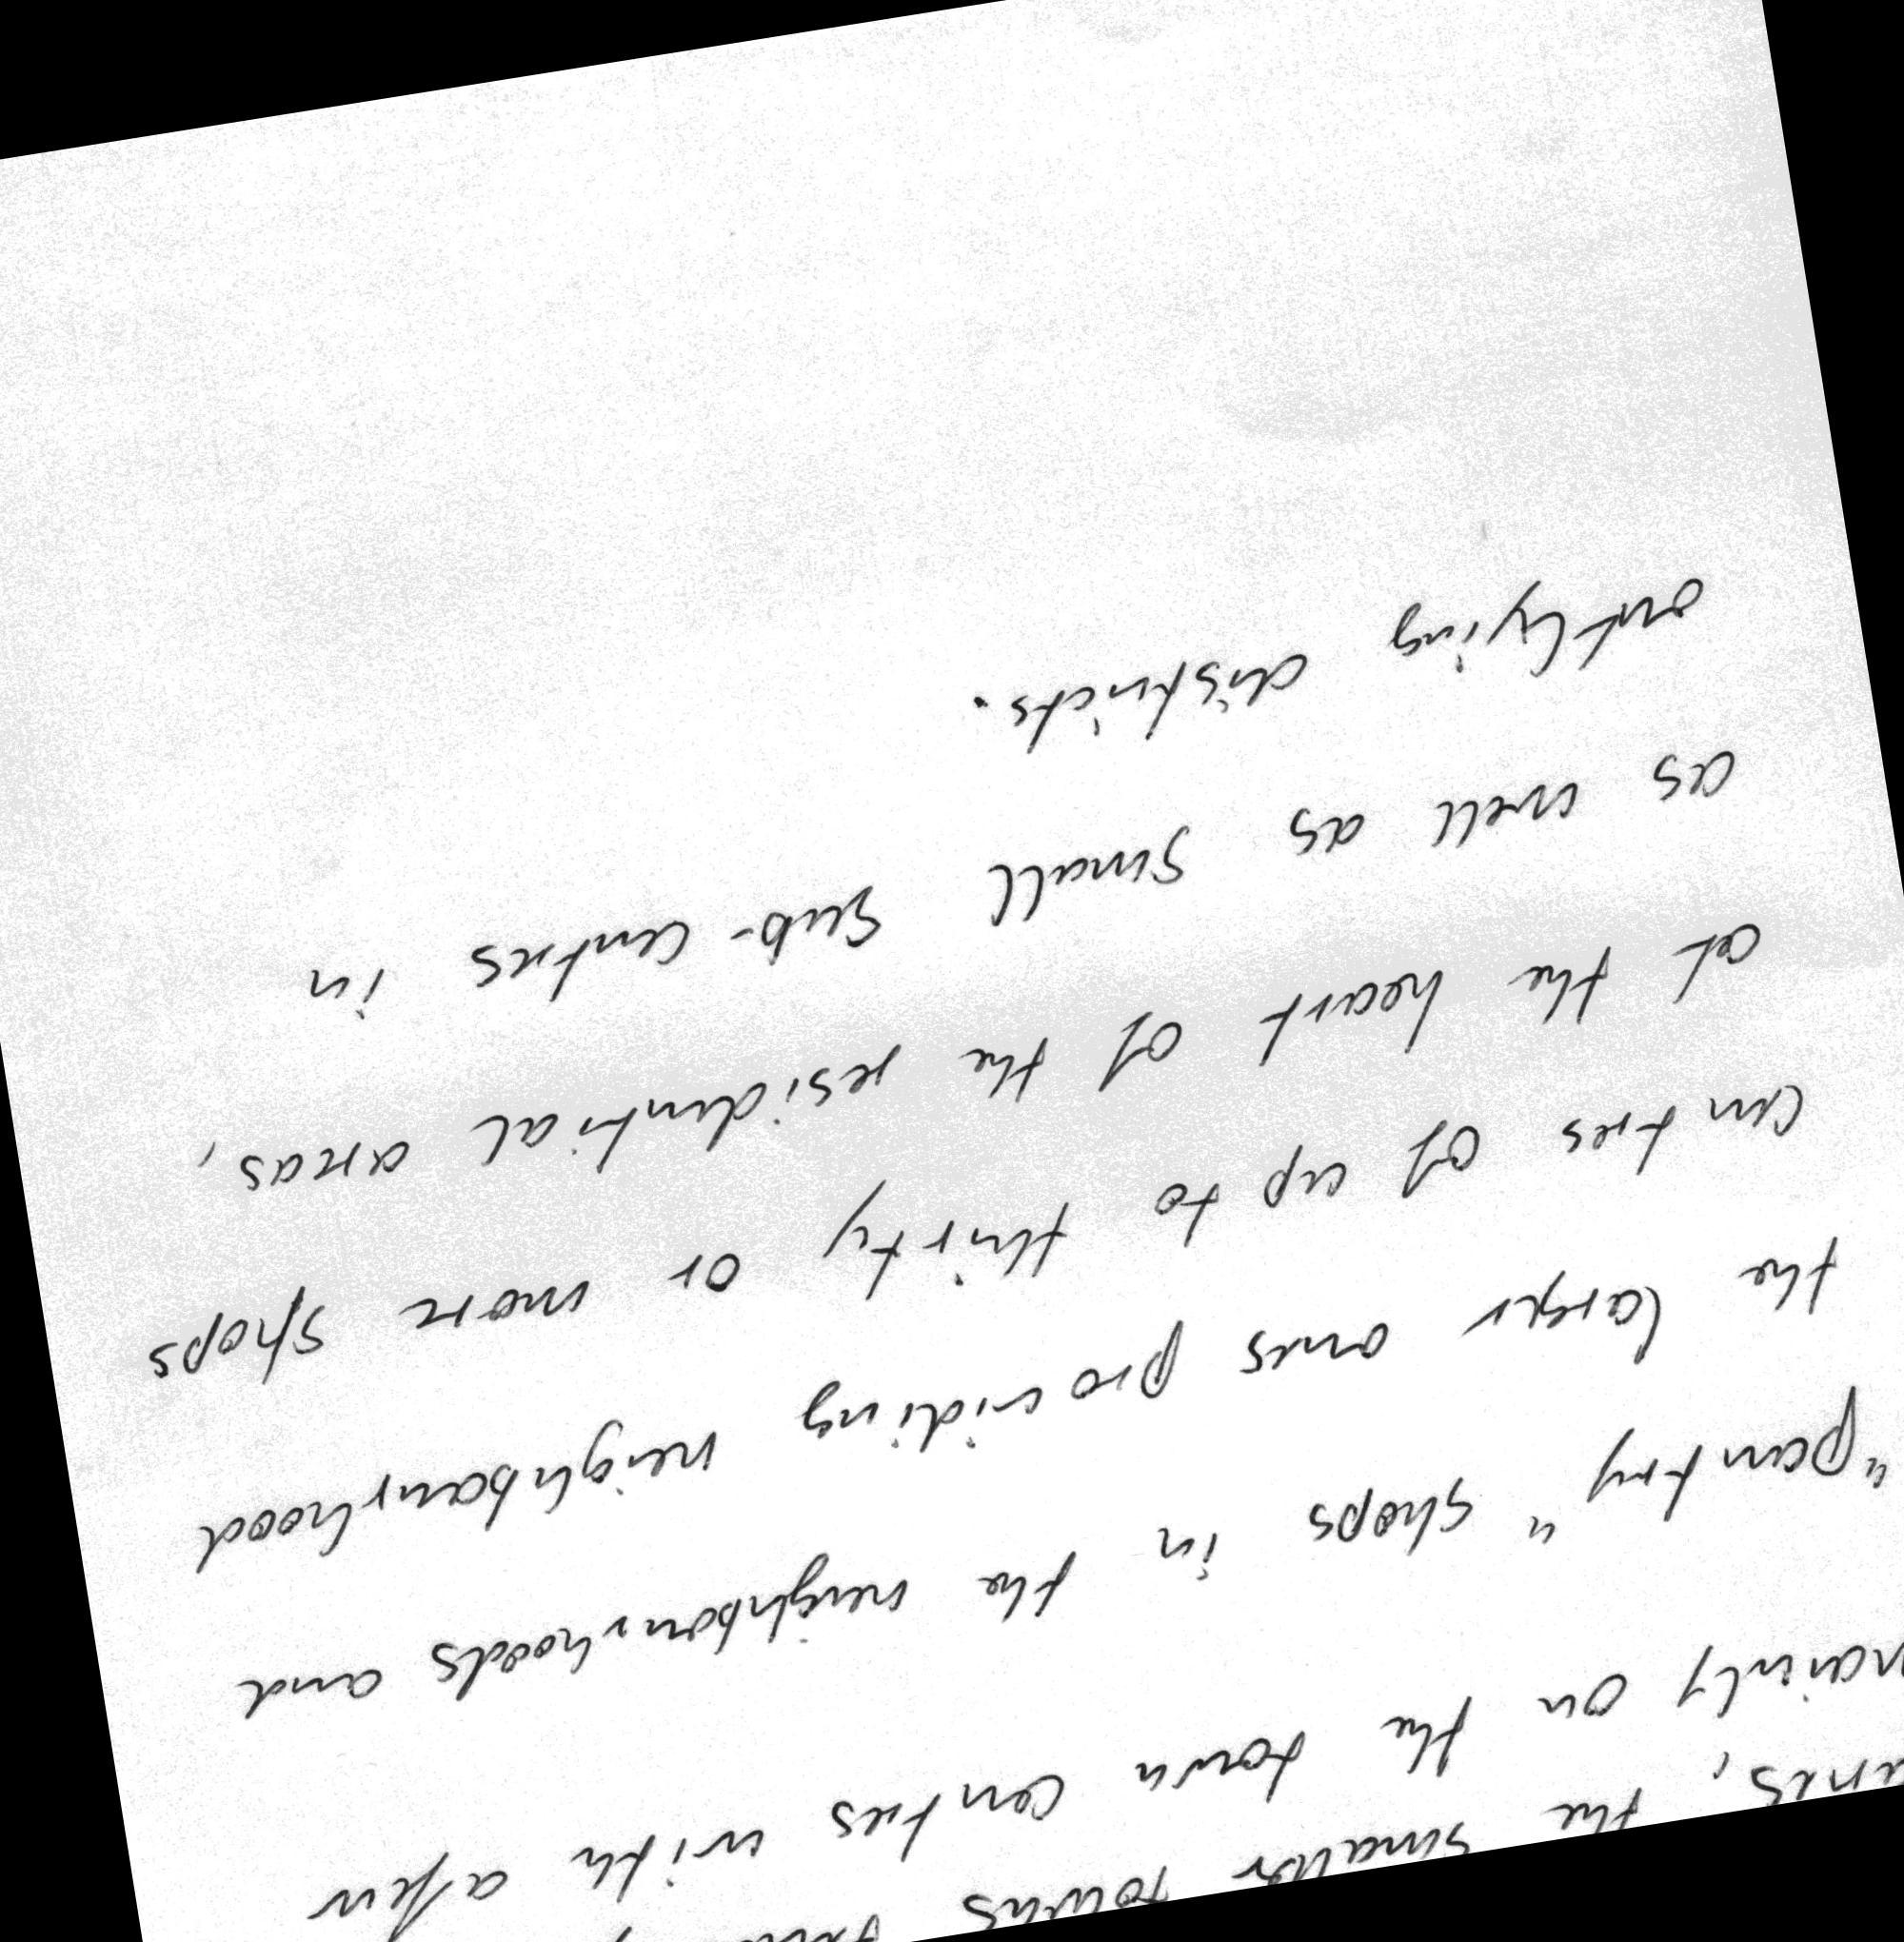 the smaller towns
mainly on the town centres with a few
"pantry" shops in the neighbourhoods and
the larger ones providing neighbourhood
centres of up to thirty or more shops
at the heart of the residential areas,
as well as small sub-centres in
outlying districts.